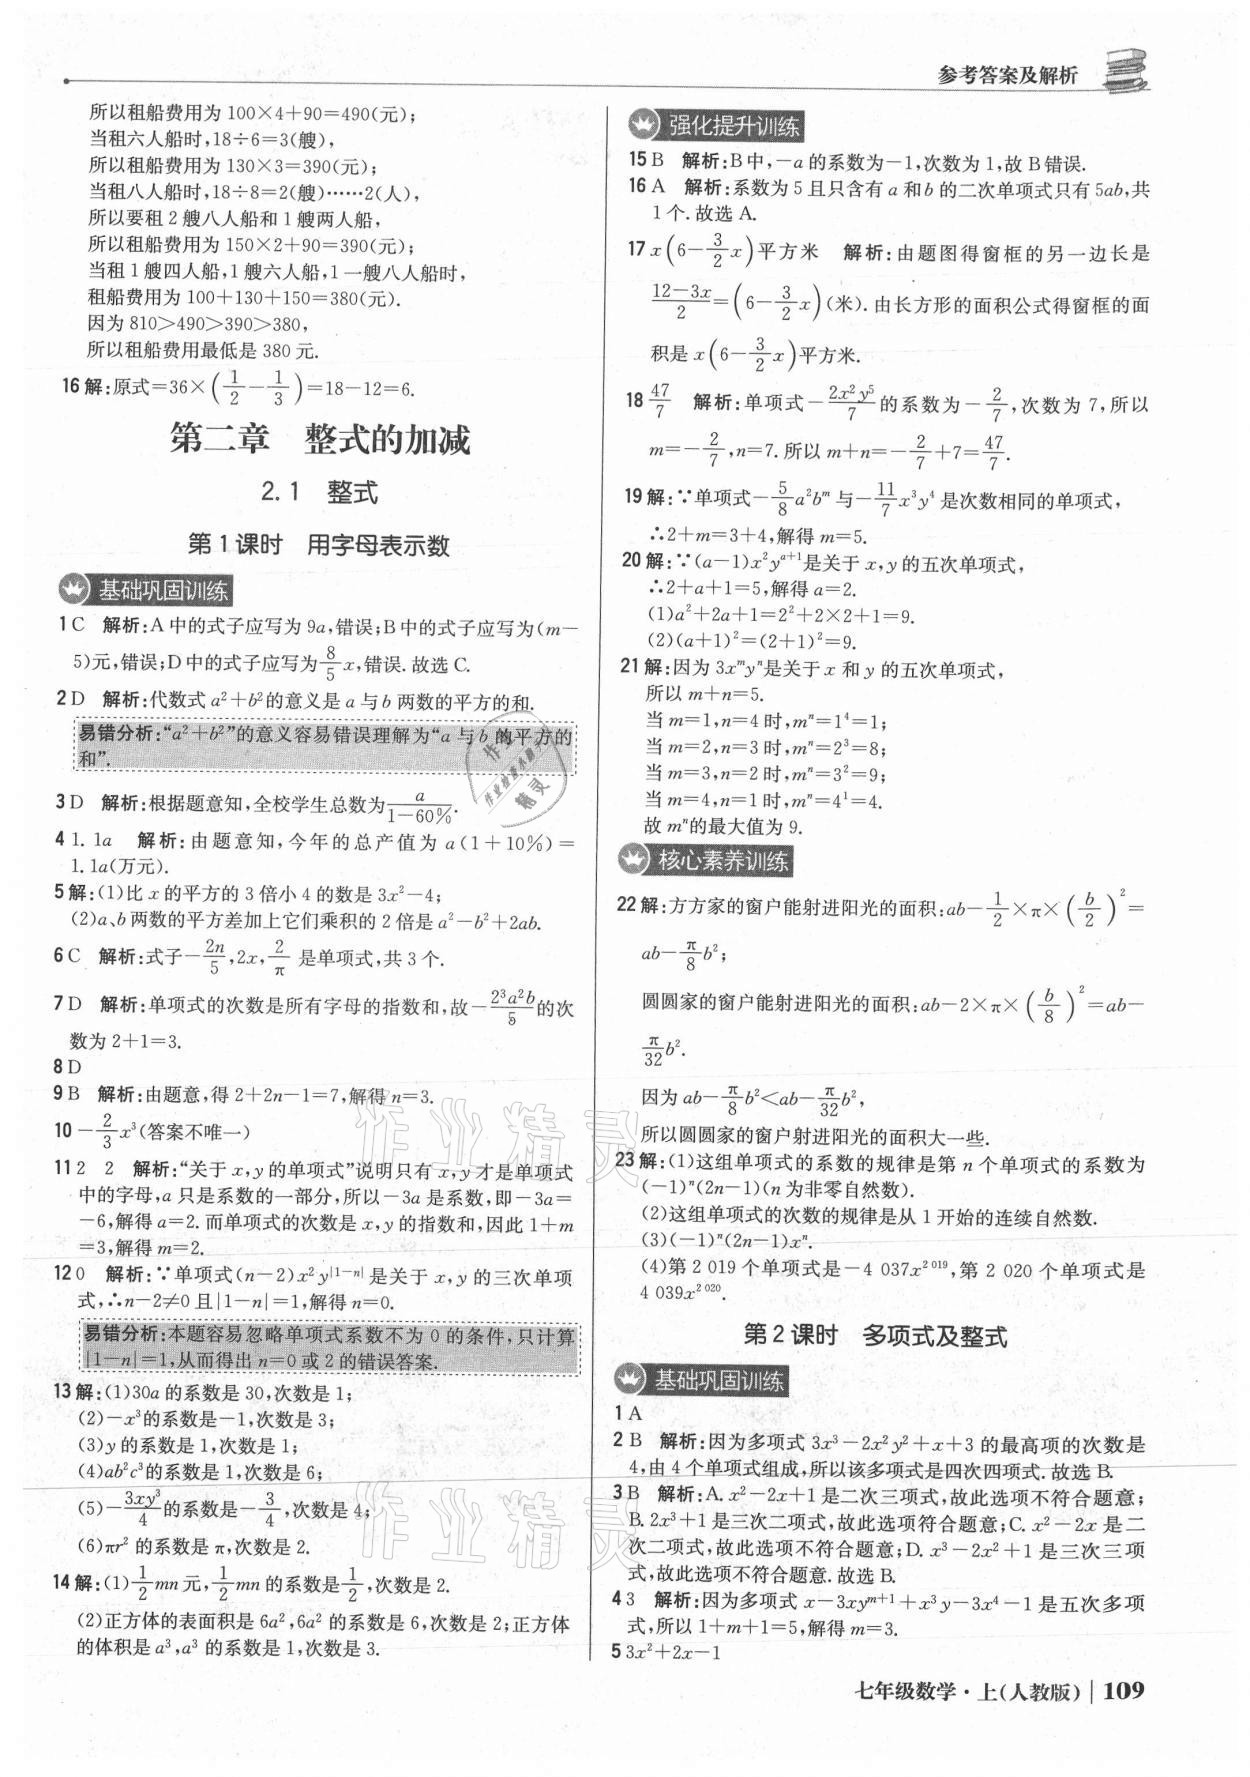 参考答案及解析
所以租船费用为 100×4+90=490(元);
当租六人船时,18÷6=3(艘),
所以租船费用为 130×3=390(元);
当租八人船时,18÷8=2(艘)……2(人),
所以要租 2 艘八人船和 1 艘两人船,
所以租船费用为 150×2+90=390(元);
当租 1 艘四人船,1 艘六人船,1 一艘八人船时,
租船费用为 100+130+150=380(元).
因为 810>490>390>380,
所以租船费用最低是 380 元.
16 解:原式=36×(1/2-1/3)=18-12=6.
第二章 整式的加减
2.1 整式
第 1 课时 用字母表示数
基础巩固训练
1 C 解析:A 中的式子应写为 9a,错误;B 中的式子应写为(m-
5)元,错误;D 中的式子应写为8/5x,错误.故选 C.
2 D 解析:代数式 a²+b²的意义是 a 与 b 两数的平方的和.
易错分析:“a²+b²”的意义容易错误理解为“a 与 b 的平方的
和”.
3 D 解析:根据题意知,全校学生总数为a/(1-60%).
4 1.1a 解析:由题意知,今年的总产值为 a(1+10%)=
1.1a(万元).
5 解:(1)比 x 的平方的 3 倍小 4 的数是 3x²-4;
(2)a、b 两数的平方差加上它们乘积的 2 倍是 a²-b²+2ab.
6 C 解析:式子-2n/5,2x,2/π 是单项式,共 3 个.
7 D 解析:单项式的次数是所有字母的指数和,故-2³a²b/5的次
数为 2+1=3.
8 D
9 B 解析:由题意,得 2+2n-1=7,解得 n=3.
10 -2/3x³(答案不唯一)
11 2 2 解析:“关于 x,y 的单项式”说明只有 x,y 才是单项式
中的字母,a 只是系数的一部分,所以-3a 是系数,即-3a=
-6,解得 a=2.而单项式的次数是 x,y 的指数和,因此 1+m
=3,解得 m=2.
12 0 解析:∵单项式(n-2)x²y^|1-n|是关于 x,y 的三次单项
式,∴n-2≠0 且|1-n|=1,解得 n=0.
易错分析:本题容易忽略单项式系数不为 0 的条件,只计算
|1-n|=1,从而得出 n=0 或 2 的错误答案.
13 解:(1)30a 的系数是 30,次数是 1;
(2)-x³的系数是-1,次数是 3;
(3)y 的系数是 1,次数是 1;
(4)ab²c³的系数是 1,次数是 6;
(5)-3xy³/4的系数是-3/4,次数是 4;
(6)πr² 的系数是 π,次数是 2.
14 解:(1)1/2mn 元,1/2mn 的系数是1/2,次数是 2.
(2)正方体的表面积是 6a²,6a² 的系数是 6,次数是 2;正方体
的体积是 a³,a³ 的系数是 1,次数是 3.
强化提升训练
15 B 解析:B 中,-a 的系数为-1,次数为 1,故 B 错误.
16 A 解析:系数为 5 且只含有 a 和 b 的二次单项式只有 5ab,共
1 个.故选 A.
17 x(6-3/2x)平方米 解析:由题图得窗框的另一边长是
(12-3x)/2=(6-3/2x)(米).由长方形的面积公式得窗框的面
积是 x(6-3/2x)平方米.
18 47/7 解析:单项式-2x²y⁵/7的系数为-2/7,次数为 7,所以
m=-2/7,n=7.所以 m+n=-2/7+7=47/7.
19 解:∵单项式-5/8a²b^m 与-11/7x³y⁴ 是次数相同的单项式,
∴2+m=3+4,解得 m=5.
20 解:∵(a-1)x²y^(a+1)是关于 x,y 的五次单项式,
∴2+a+1=5,解得 a=2.
(1)a²+2a+1=2²+2×2+1=9.
(2)(a+1)²=(2+1)²=9.
21 解:因为 3x^m y^n是关于 x 和 y 的五次单项式,
所以 m+n=5.
当 m=1,n=4 时,m^n=1⁴=1;
当 m=2,n=3 时,m^n=2³=8;
当 m=3,n=2 时,m^n=3²=9;
当 m=4,n=1 时,m^n=4¹=4.
故 m^n的最大值为 9.
核心素养训练
22 解:方方家的窗户能射进阳光的面积:ab-1/2×π×(b/2)²=
ab-π/8b²;
圆圆家的窗户能射进阳光的面积:ab-2×π×(b/8)²=ab-
π/32b².
因为 ab-π/8b²<ab-π/32b²,
所以圆圆家的窗户射进阳光的面积大一些.
23 解:(1)这组单项式的系数的规律是第 n 个单项式的系数为
(-1)^n(2n-1)(n 为非零自然数).
(2)这组单项式的次数的规律是从 1 开始的连续自然数.
(3)(-1)^n(2n-1)x^n.
(4)第 2 019 个单项式是-4 037x^2 019,第 2 020 个单项式是
4 039x^2 020.
第 2 课时 多项式及整式
基础巩固训练
1 A
2 B 解析:因为多项式 3x³-2x²y²+x+3 的最高项的次数是
4,由 4 个单项式组成,所以该多项式是四次四项式.故选 B.
3 B 解析:A.x²-2x+1 是二次三项式,故此选项不符合题意;
B.2x³+1 是三次二项式,故此选项符合题意;C.x²-2x 是二
次二项式,故此选项不符合题意;D.x³-2x²+1 是三次三项
式,故此选项不符合题意.故选 B.
4 3 解析:因为多项式 x-3xy^(m+1)+x³y-3x⁴-1 是五次多项
式,所以 1+m+1=5,解得 m=3.
5 3x²+2x-1
七年级数学·上(人教版) | 109
作业精灵
作业精灵